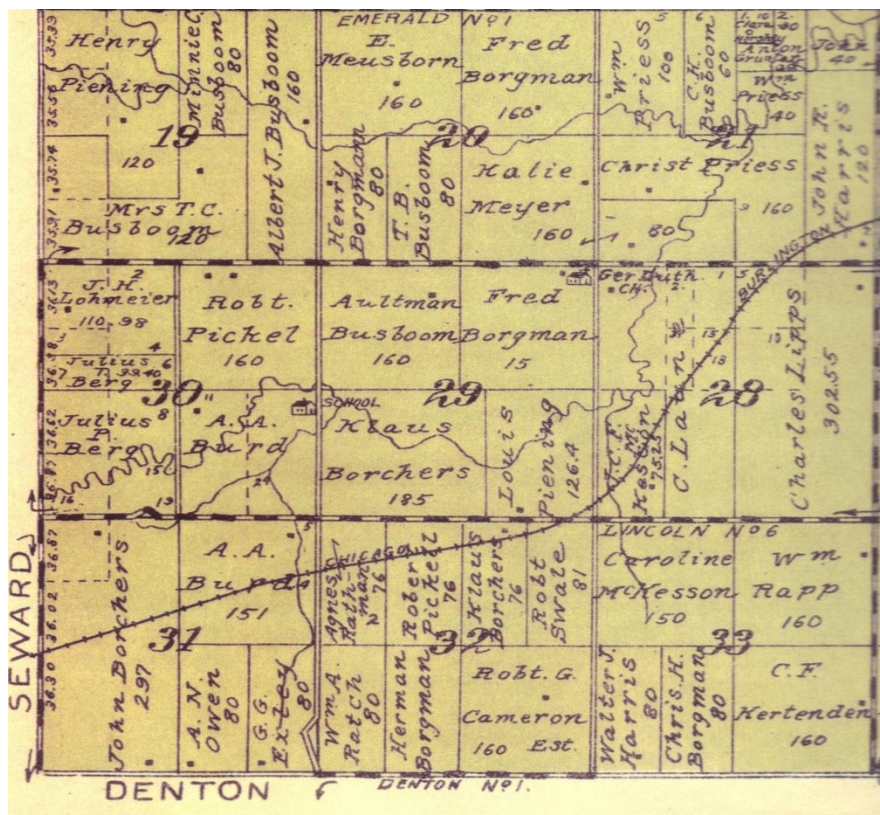 EMERALD No 1
Henry
Piening
120
Minnie C.
Busboom
80
Albert J. Busboom
160
19
Mrs T. C.
Busboom
120
35.74
35.91
E.
Meusborn
160
Fred
Borgman
160
20
Henry
Borgmann
80
T. B.
Busboom
80
Halie
Meyer
160
Wm
Priess
100
C. H.
Busboom
60
Anton
Wm
Priess
40
John
40
21
Christ Priess
160
80
John H.
Harris
120
BURLINGTON
J. H.
Lohmeier
110.98
Julius
Berg
Robt.
Pickel
160
30
Julius
P.
Berg
A. A.
Burd
36.62
Aultman
Busboom
160
Fred
Borgman
15
29
SCHOOL
Klaus
Borchers
185
Louis
Piening
126.4
Ger. Luth.
CH.
J. C. F.
Mc
Kesson
75.25
C. Laune
28
Charles Lipps
302.55
SEWARD
36.87
36.02
36.30
John Borchers
297
A. A.
Burd
151
31
A. N.
Owen
80
G. G.
Exley
80
CHICAGO
Agnes
Rath-
man
76
Rober
Pickell
76
Klaus
Borchers
76
Robt
Swale
81
32
Wm A.
Ratch
80
Herman
Borgman
80
Robt. G.
Cameron
160 Est.
LINCOLN No 6
Caroline
McKesson
150
Wm
Rapp
160
33
Walter J.
Harris
80
Chris. H.
Borgman
80
C. F.
Hertenden
160
DENTON
DENTON No 1.